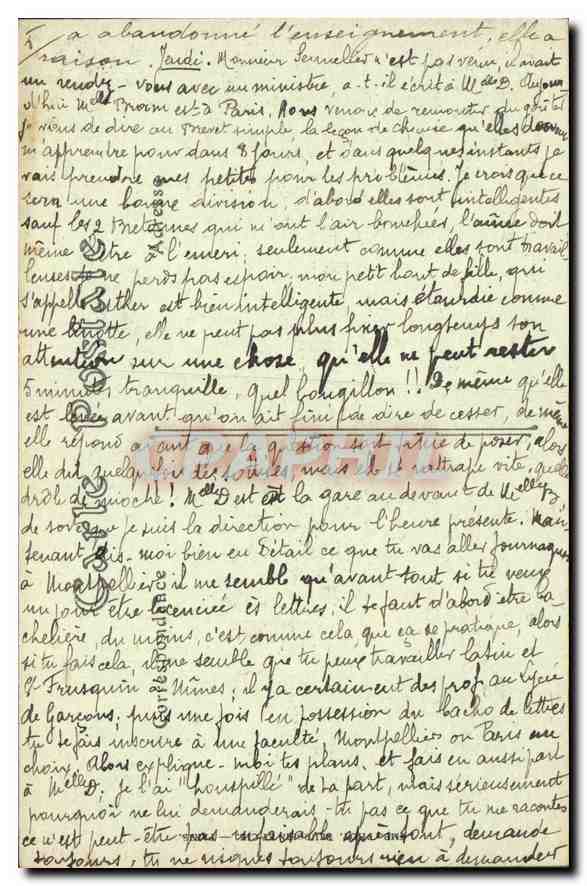 a abandonné l'enseignement, elle a
raison. Jeudi. Monsieur n'est pas venu, il avait
un rendez-vous avec un ministre, a-t-il écrit à Melle D. Aujour-
d'hui Melle est à Paris. Nous venons de remonter du goûter
Je viens de dire au Brevet simple, la leçon de chimie qu'elles doivent
m'apprendre pour dans 8 jours, et dans quelques instants je
vais prendre mes petites pour les problèmes. Je crois que ce
sera une bonne division; d'abord elles sont intelligentes
sauf les 2 Bretonnes qui m'ont l'air bouchées, l'aînée doit
même être à l'émeri; seulement comme elles sont travail-
leuses je ne perds pas espoir. mon petit bout de fille, qui
s'appelle Esther est bien intelligente, mais étourdie comme
une linotte, elle ne peut pas plus fixer longtemps son
attention sur une chose, qu'elle ne peut rester
5 minutes tranquille, quel !! De même qu'elle
est levée avant qu'on ait fini de dire de cesser, de même
elle répond avant que la question soit finie de poser, alors
elle dit quelquefois des sottises, mais elle se rattrape vite, quelle
drôle de mioche! Melle D est à la gare au devant de Melle B
de sorte que je suis la direction pour l'heure présente. Main-
tenant, dis-moi bien en détail ce que tu vas aller
à Montpellier, il me semble qu'avant tout si tu veux
un jour être licenciée ès lettres, il te faut d'abord être ba-
chelière, du moins, c'est comme cela que ça se pratique, alors
si tu fais cela, il me semble que tu peux travailler latin et
St Frusquin à Nîmes; il y a certainement des prof au Lycée
de Garçons; puis une fois en possession du bacho de lettres
tu te fais inscrire à une faculté Montpellier ou Paris au
choix. Alors explique-moi tes plans. et fais en aussi part
à Melle D. je l'ai "houspillé" de ta part, mais sérieusement
pourquoi ne lui demanderais-tu pas ce que tu me racontes
ce n'est peut-être pas infaisable après tout, demande
toujours, tu ne risques toujours rien à demander
Carte Postale
Correspondance
Adresse